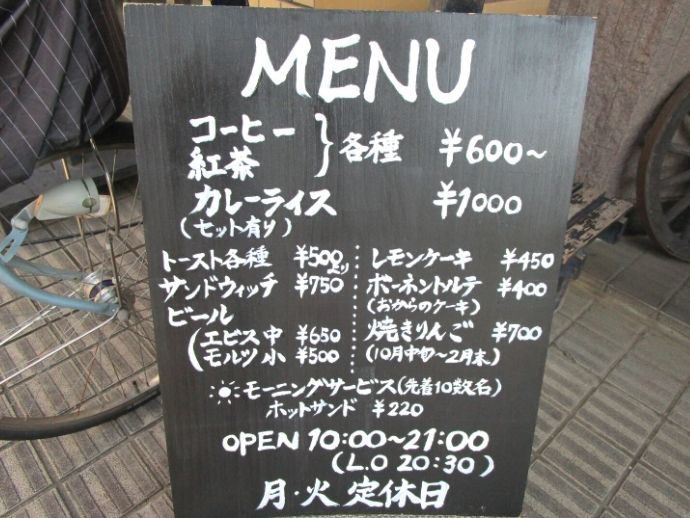 MENU
コーヒー
紅茶 } 各種 ¥600～
カレーライス ¥1000
(セット有り)
トースト各種 ¥500より
サンドウィッチ ¥750
ビール
エビス中 ¥650
モルツ小 ¥500
レモンケーキ ¥450
ボーネントルテ ¥400
(おからのケーキ)
焼きりんご ¥700
(10月中旬～2月末)
モーニングサービス(先着10数名)
ホットサンド ¥220
OPEN 10:00～21:00
(L.O 20:30)
月・火 定休日